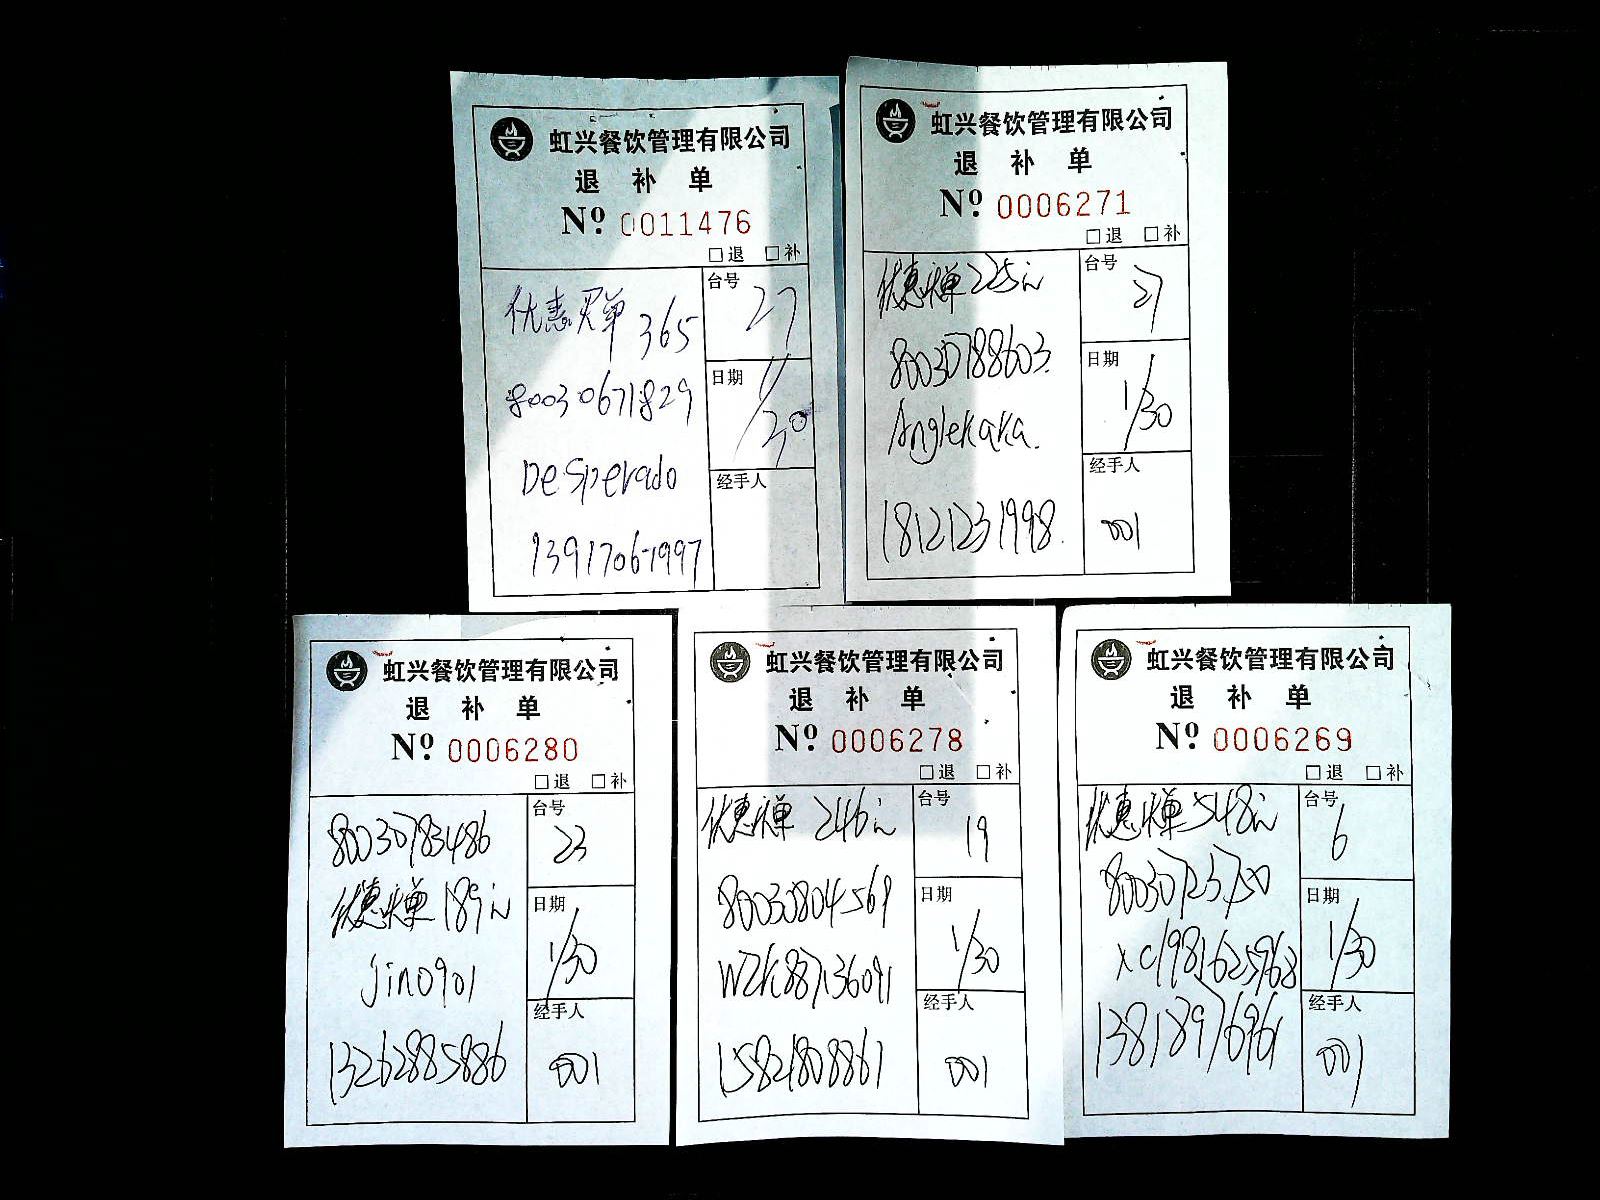 虹兴餐饮管理有限公司
退 补 单
Nº 0011476
□退 □补
优惠买单 365
80030671829
Desperado
13917061997
台号
27
日期
1/30
经手人
虹兴餐饮管理有限公司
退 补 单
Nº 0006271
□退 □补
优惠买单 225元
80030788603.
Anglekaka.
18121231998.
台号
27
日期
1/30
经手人
001
虹兴餐饮管理有限公司
退 补 单
Nº 0006280
□退 □补
80030783486
优惠买单 189元
Jin0901
13262885886
台号
23
日期
1/30
经手人
001
虹兴餐饮管理有限公司
退 补 单
Nº 0006278
□退 □补
优惠买单 246元
80030804569
15821808861
台号
19
日期
1/30
经手人
001
虹兴餐饮管理有限公司
退 补 单
Nº 0006269
□退 □补
优惠买单 548元
台号
6
日期
1/30
经手人
001